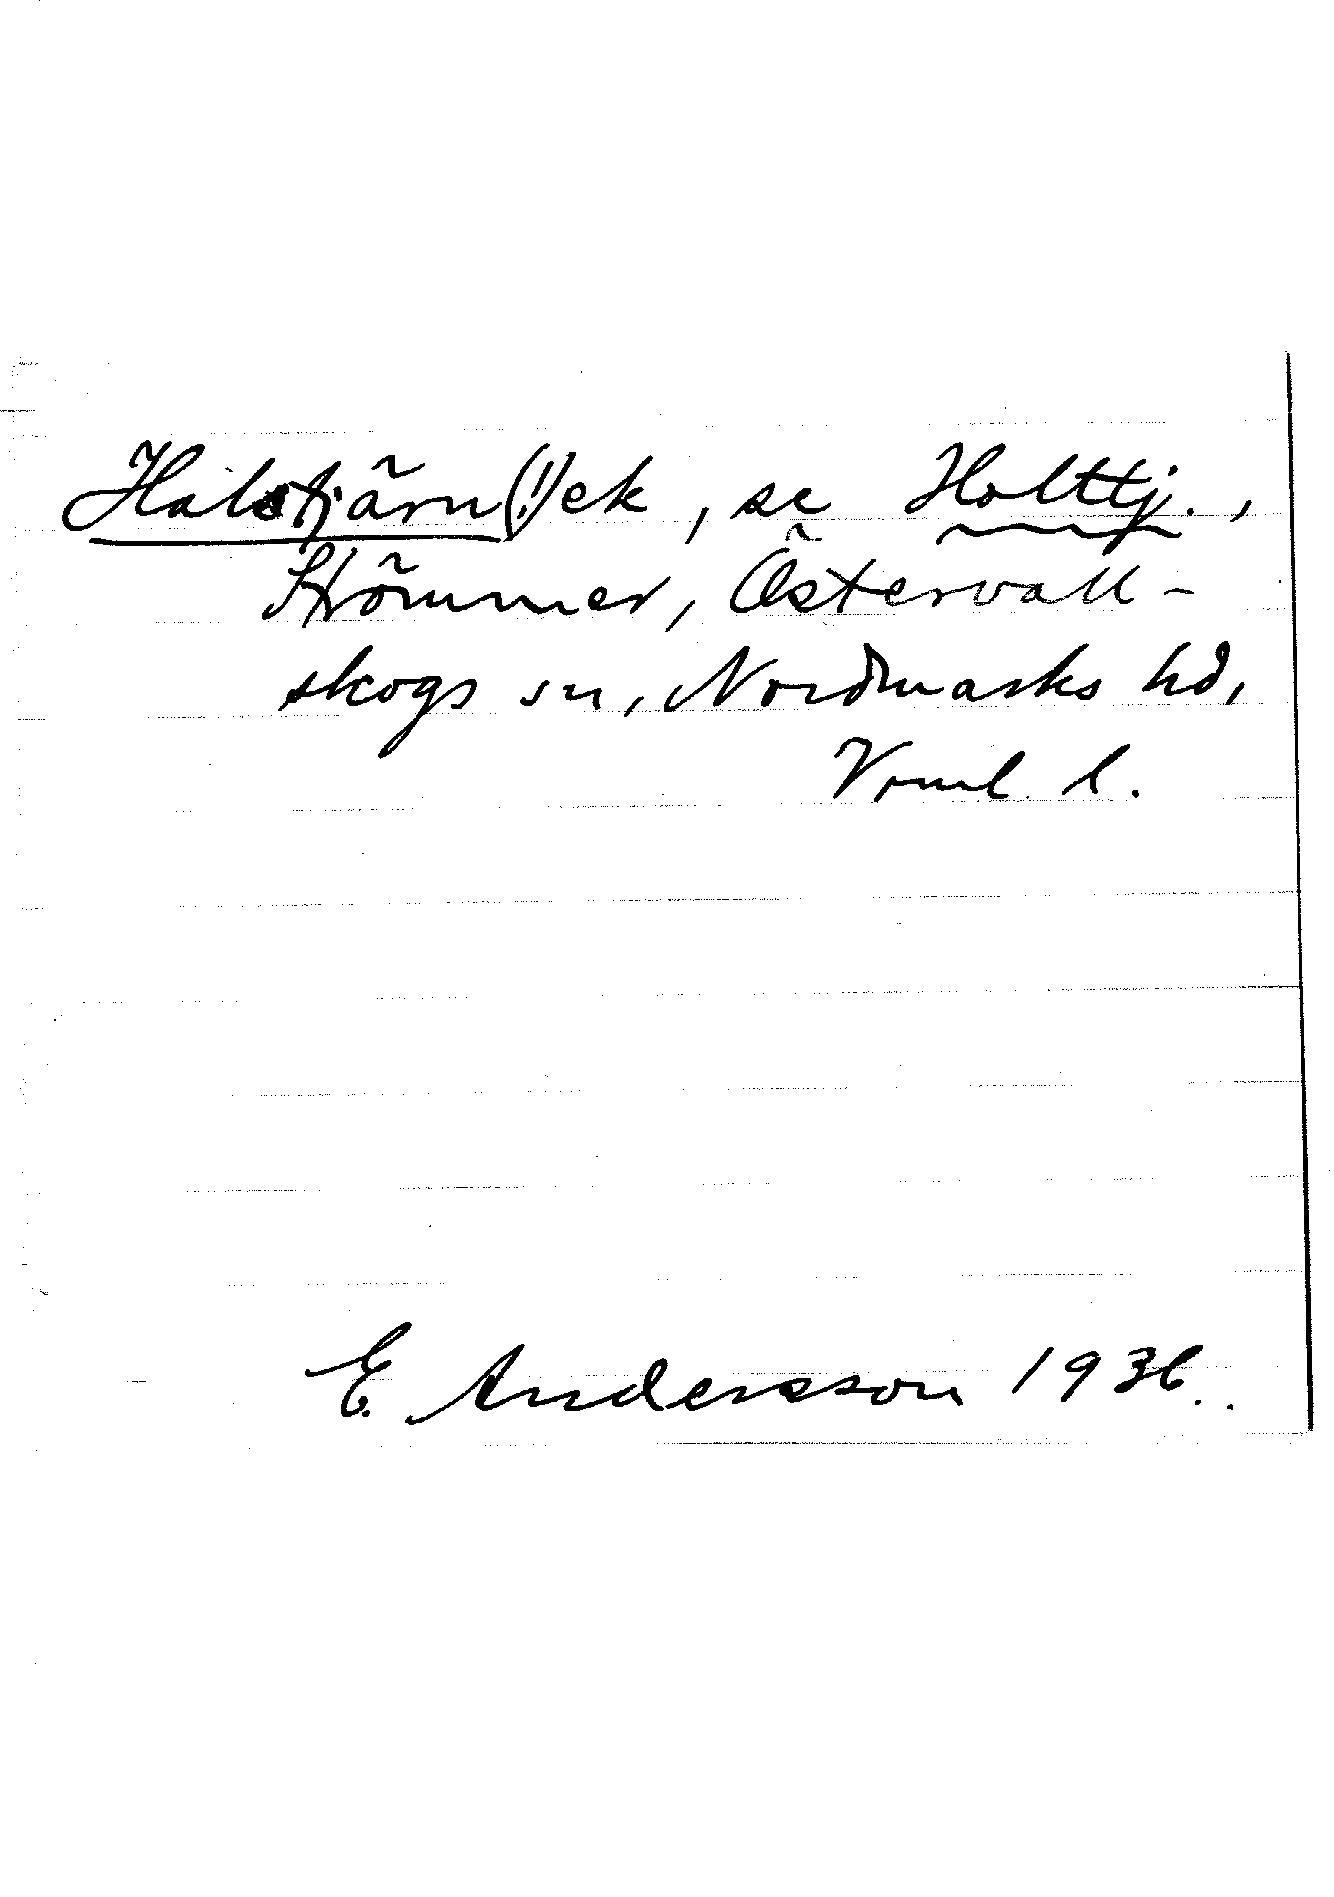 Halstjärn(!)ek, se Holttj.,
Strömmer, Östervall-
skogs sn, Nordmarks hd,
Vrml. l.
E. Andersson 1936.